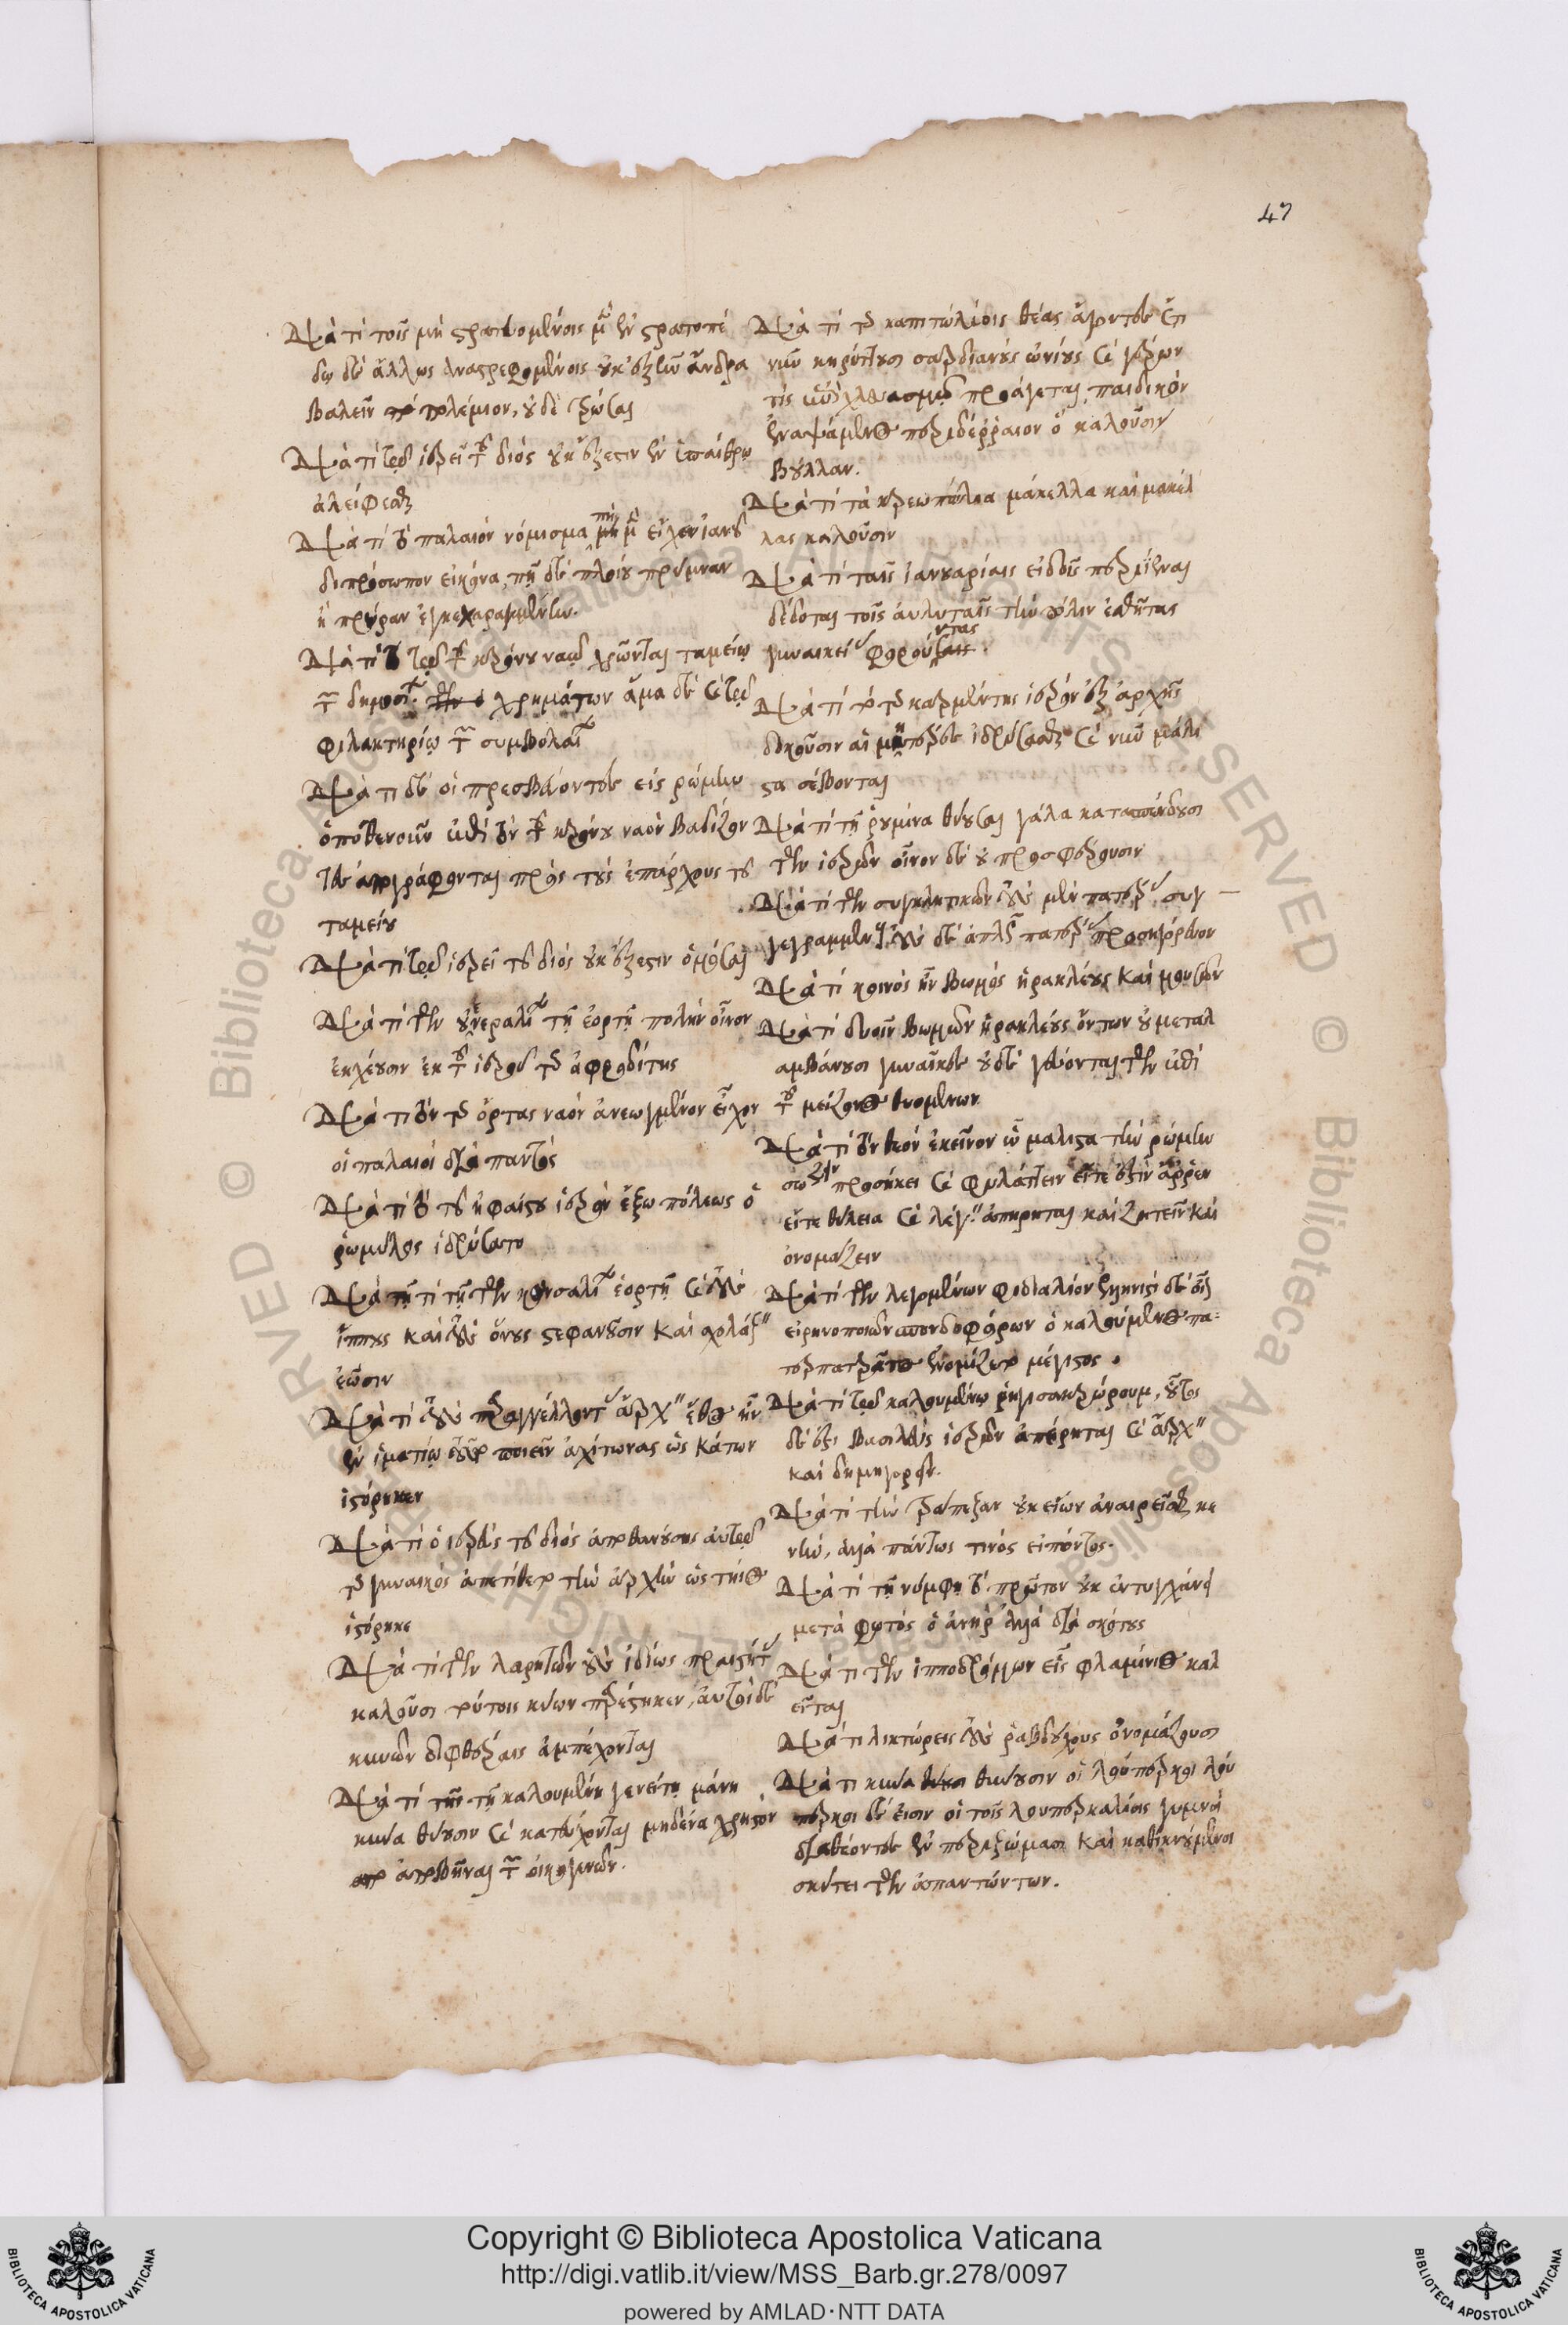 47
Διὰ τί τοῖς μὴ στρατευομένοις μὲν ἐν στρατοπέ
δῳ δὲ ἄλλως ἀναστρεφομένοις οὐκ ἐξῆν ἄνδρα
βαλεῖν πολέμιον, οὐδὲ τρῶσαι
Διὰ τί τῷ ἱερεῖ τοῦ διὸς οὐκ ἔξεστιν ἐν ὑπαίθρῳ
ἀλείφεσθαι
Διὰ τί τὸ παλαιὸν νόμισμα πὴ μὲν εἶχεν ἰανοῦ
διπρόσωπον εἰκόνα, πῆ δὲ πλοίου πρύμναν
ἢ πρῷραν ἐγκεχαραγμένην.
Διὰ τί τῷ τοῦ κρόνου ναῷ χρῶνται ταμείῳ
τῶν δημοσίων χρημάτων ἅμα δὲ καὶ τῷ
φιλακτηρίῳ τῶν συμβολαίων
Διὰ τι δὲ οἱ πρεσβεύοντες εἰς ρώμην
ὁποθενοῦν ἐπὶ τὸν τοῦ κρόνου ναὸν βαδίζον
τες ἀπογράφονται πρὸς τοὺς ἐπάρχους τοῦ
ταμείου
Διὰ τί τῷ ἱερεῖ τοῦ διὸς οὐκ ἔξεστιν ὀμόσαι
Διὰ τί τῶν οὐνεραλίων τῇ ἑορτῇ πολὺν οἶνον
ἐκχέουσιν ἐκ τοῦ ἱεροῦ τῆς ἀφροδίτης
Διὰ τι τὸν τῆς ὅρτας ναὸν ἀνεωγμένον εἶχον
οἱ παλαιοὶ διὰ παντός
Διὰ τι τὸ τοῦ ἡφαίστου ἱερὸν ἔξω πόλεως ὁ
ῥωμύλος ἱδρύσατο
Διὰ τῇ τί τῇ τῶν κονσαλίων ἑορτῇ καὶ τοὺς
ἵππους καὶ τοὺς ὄνους στεφανοῦσιν καὶ σχολάζειν
ἐῶσιν
Διὰ τί τοὺς παραγγέλλοντας ἄρχειν ἔθος ἦν
ἐν ἱματίῳ τοῦτο ποιεῖν ἀχίτωνας ὡς κάτων
ἱστόρηκεν
Διὰ τί ὁ ἱερεὺς τοῦ διὸς ἀποθανούσης αὐτῷ
τῆς γυναικὸς ἀπετίθετο τὴν ἀρχὴν ὥς τήιος
ἱστόρηκε
Διὰ τί τῶν λαρητῶν τοὺς ἰδίως πραιστήτεις
καλοῦσι τούτοις κύων παρέστηκεν, αὐτοὶ δὲ
κυνῶν διφθέραις ἀμπέχονται
Διὰ τί τῇ καλουμένῃ γενείτῃ μάνῃ
κύνα θύουσιν καὶ κατεύχονται μηδένα χρηστὸν
ἀποβῆναι τῶν οἰκογενῶν.
Διὰ τί τῆς καπιτωλίοις θέας ἄγοντες ἔτι
νῦν κηρύττουσι σαρδιανοὺς ὠνίους καὶ γέρων
τίς ἐπὶ χλευασμῷ προάγεται, παιδικὸν
ἐναψάμενος περιδέρραιον ὃ καλοῦσιν
βούλλαν.
Διὰ τί τὰ κρεωπώλια μάκελλα καὶ μακέλ
λας καλοῦσιν
Διὰ τί ταῖς ἰανουαρίαις εἰδοῖς περιϊέναι
δέδοται τοῖς αὐλυταῖς τὴν πόλιν ἐσθῆτας
γυναικείας φοροῦντας.
Διὰ τί τὸ τῆς καρμέντης ἱερὸν ἐξ ἀρχῆς
δοκοῦσιν αἱ μητέρες ἱδρύσασθαι καὶ νῦν μάλι
στα σέβονται
Διὰ τί τῇ ῥουμίνα θύουσαι γάλα κατασπένδουσι
τῶν ἱερῶν οἶνον δὲ οὐ προσφέρουσιν
Διὰ τί τῶν συγκλητικῶν τοὺς μὲν πατέρας συγ
γεγραμμένους, τοὺς δὲ ἁπλῶς πατέρας προσηγόρευον
Διὰ τί κοινὸς ἦν βωμὸς ἡρακλέους καὶ μουσῶν
Διὰ τί δυοῖν βωμῶν ἡρακλέους ὄντων οὐ μεταλ
αμβάνουσι γυναῖκες οὐδὲ γεύονται τῶν ἐπὶ
τοῦ μείζονος θυομένων
Διὰ τί τὸν θεὸν ἐκεῖνον ᾧ μάλιστα τὴν ρώμην
σώζειν προσήκει καὶ φυλάττειν εἴτε ἐστὶν ἄρρεν
εἴτε θήλεια καὶ λέγειν ἀπηρηται καὶ ζητεῖν καὶ
ὀνομάζειν
Διὰ τί τῶν λεγομένων φιδιαλίον ἑλληνιστὶ δὲ οἷον
εἰρηνοποιῶν σπονδοφόρων ὁ καλούμενος πα:
τερ πατρᾶτος ἐνομίζετο μέγιστος.
Διὰ τί τῷ καλουμένῳ ῥηγι σακρώρουμ, οὗτος
δὲ ἐστι βασιλεὺς ἱερῶν ἀπείρηται καὶ ἄρχειν
καὶ δημηγορεῖν.
Διὰ τί τὴν τράπεζαν οὐκ εἴων ἀναιρεῖσθαι κε
νήν, ἀλλὰ πάντως τινὸς εἰπόντος.
Διὰ τί τῇ νύμφῃ τὸ πρῶτον οὐκ ἐντυγχάνει
μετὰ φωτὸς ὁ ἀνὴρ ἀλλὰ διὰ σκότους
Διὰ τι τῶν ἱπποδρόμων εἷς φλαμίνιος καλ
εῖται
Διὰ τι λικτώρεις τοὺς ῥαβδούχους ὀνομάζουσι
Διὰ τι κύνα θύουσιν οἱ λούπερκοι λού
περκοι δέ εἰσιν οἱ τοῖς λουπερκαλίοις γυμνοὶ
διαθέοντες ἐν περιζώμασι καὶ καθικνούμενοι
σκύτει τῶν ἀπαντώντων.
Copyright © Biblioteca Apostolica Vaticana
http://digi.vatlib.it/view/MSS_Barb.gr.278/0097
powered by AMLAD·NTT DATA